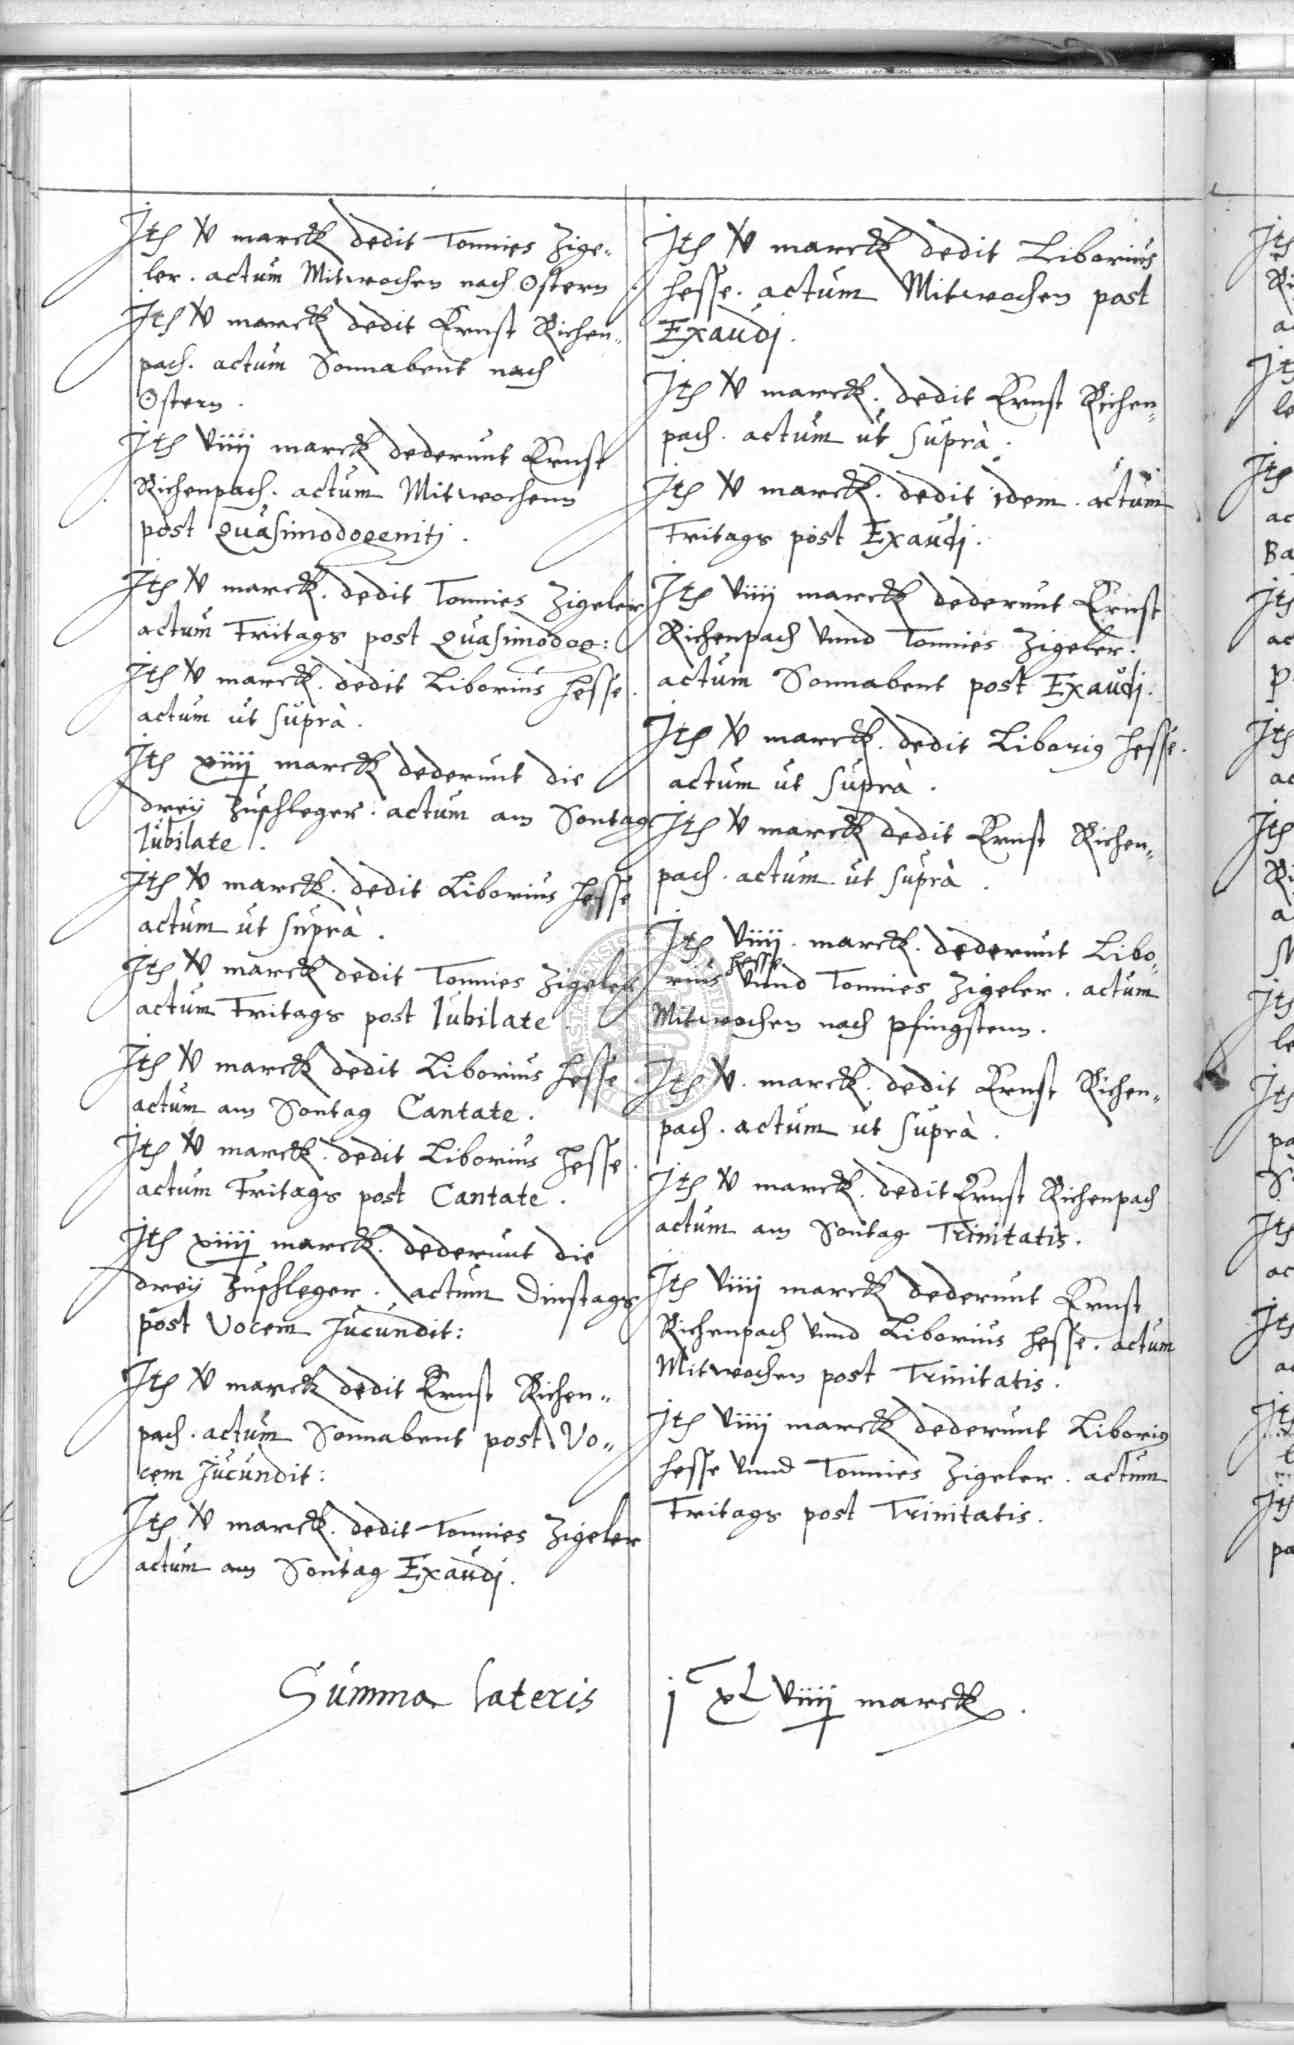 Jtem v marck dedit Tonnies Zige=
ler. actum Mitwochen nach Ostern
Jtem v marck dedit Ernst Richen=
pach. actum Sonnabent nach
Ostern.
Jtem viiij marck dederunt Ernst
Richenpach. actum Mitwochenn
post Quasimodogenitj.
Jtem v marck. dedit Tonnies Zigeler
actum Fritags post Quasimodog:
Jtem v marck. dedit Liborius Hesse.
actum ut suprà.
Jtem xiiij marck dederunt die
drey Zuschleger. actum am Sontag
Iubilate.
Jtem v marck. dedit Liborius Hesse
actum ut suprà.
Jtem v marck dedit Tonnies Zigeler
actum Fritags post Iubilate.
Jtem v marck dedit Liborius Hesse
actum am Sontag Cantate.
Jtem v marck. dedit Liborius Hesse.
actum Fritags post Cantate.
Jtem xiiij marck. dederunt die
drey Zuschleger. actum Dinstags
post Vocem Jucundit:
Jtem v marck dedit Ernst Richen=
pach. actum Sonnabent post Vo=
cem Jucundit:
Jtem v marck. dedit Tonnies Zigeler
actum am Sontag Exaudj.
Summa lateris
Jtem v marck dedit Liborius
Hesse. actum Mitwochen post
Exaudj.
Jtem v marck. dedit Ernst Richen=
pach. actum ut suprà.
Jtem v marck. dedit idem. actum
Fritags post Exaudj.
Jtem viiij marck dederunt Ernst
Richenpach vnnd Tonnies Zigeler.
actum Sonnabent post Exaudj.
Jtem v marck. dedit Liborius Hesse.
actum ut suprà.
Jtem v marck dedit Ernst Richen=
pach. actum ut suprà.
Jtem viiij. marck. dederunt Libo=
rius Hesse vnnd Tonnies Zigeler. actum
Mitwochen nach Pfingstenn.
Jtem v. marck. dedit Ernst Richen=
pach. actum ut suprà.
Jtem v marck. dedit Ernst Richenpach
actum am Sontag Trinitatis.
Jtem viiij marck dederunt Ernst
Richenpach vnnd Liborius Hesse. actum
Mitwochen post Trinitatis.
Jtem viiij marck dederunt Liborius
Hesse vnnd Tonnies Zigeler. actum
Fritags post Trinitatis.
j<sup>c</sup> xl viiij marck.